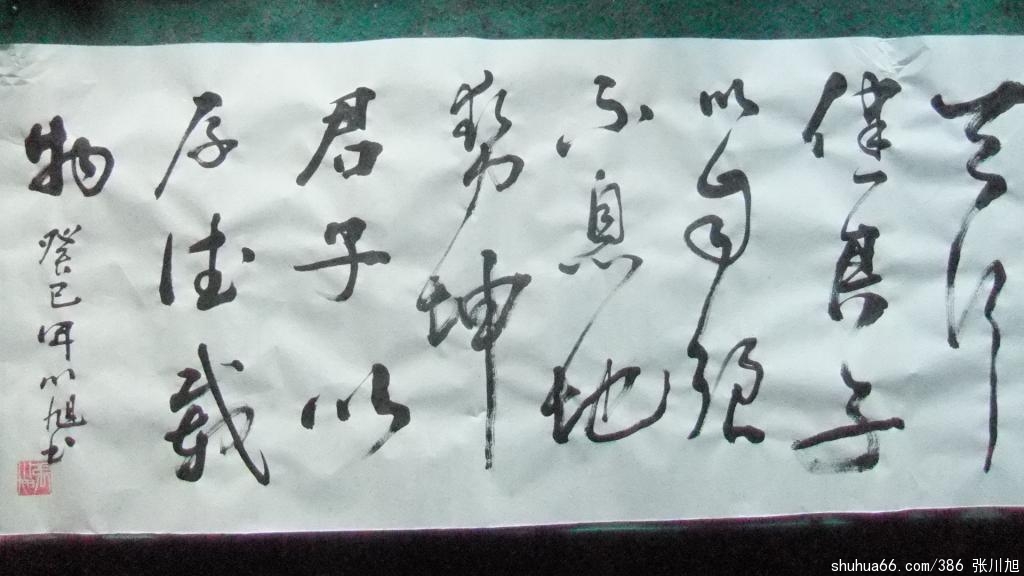 天行
健君子
以自强
不息地
势坤
君子以
厚德载
物
癸巳年川旭书
shuhua66.com/386 张川旭